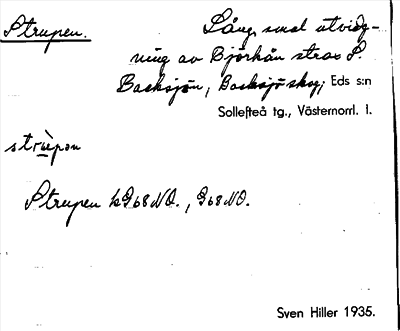 Strupen.
Lång, smal utvidg-
ning av Björkån strax S.
Backsjön, Backsjö skog; Eds s:n
Sollefteå tg., Västernorrl. l.
strùpən
Strupen k968NO., 968NO.
Sven Hiller 1935.